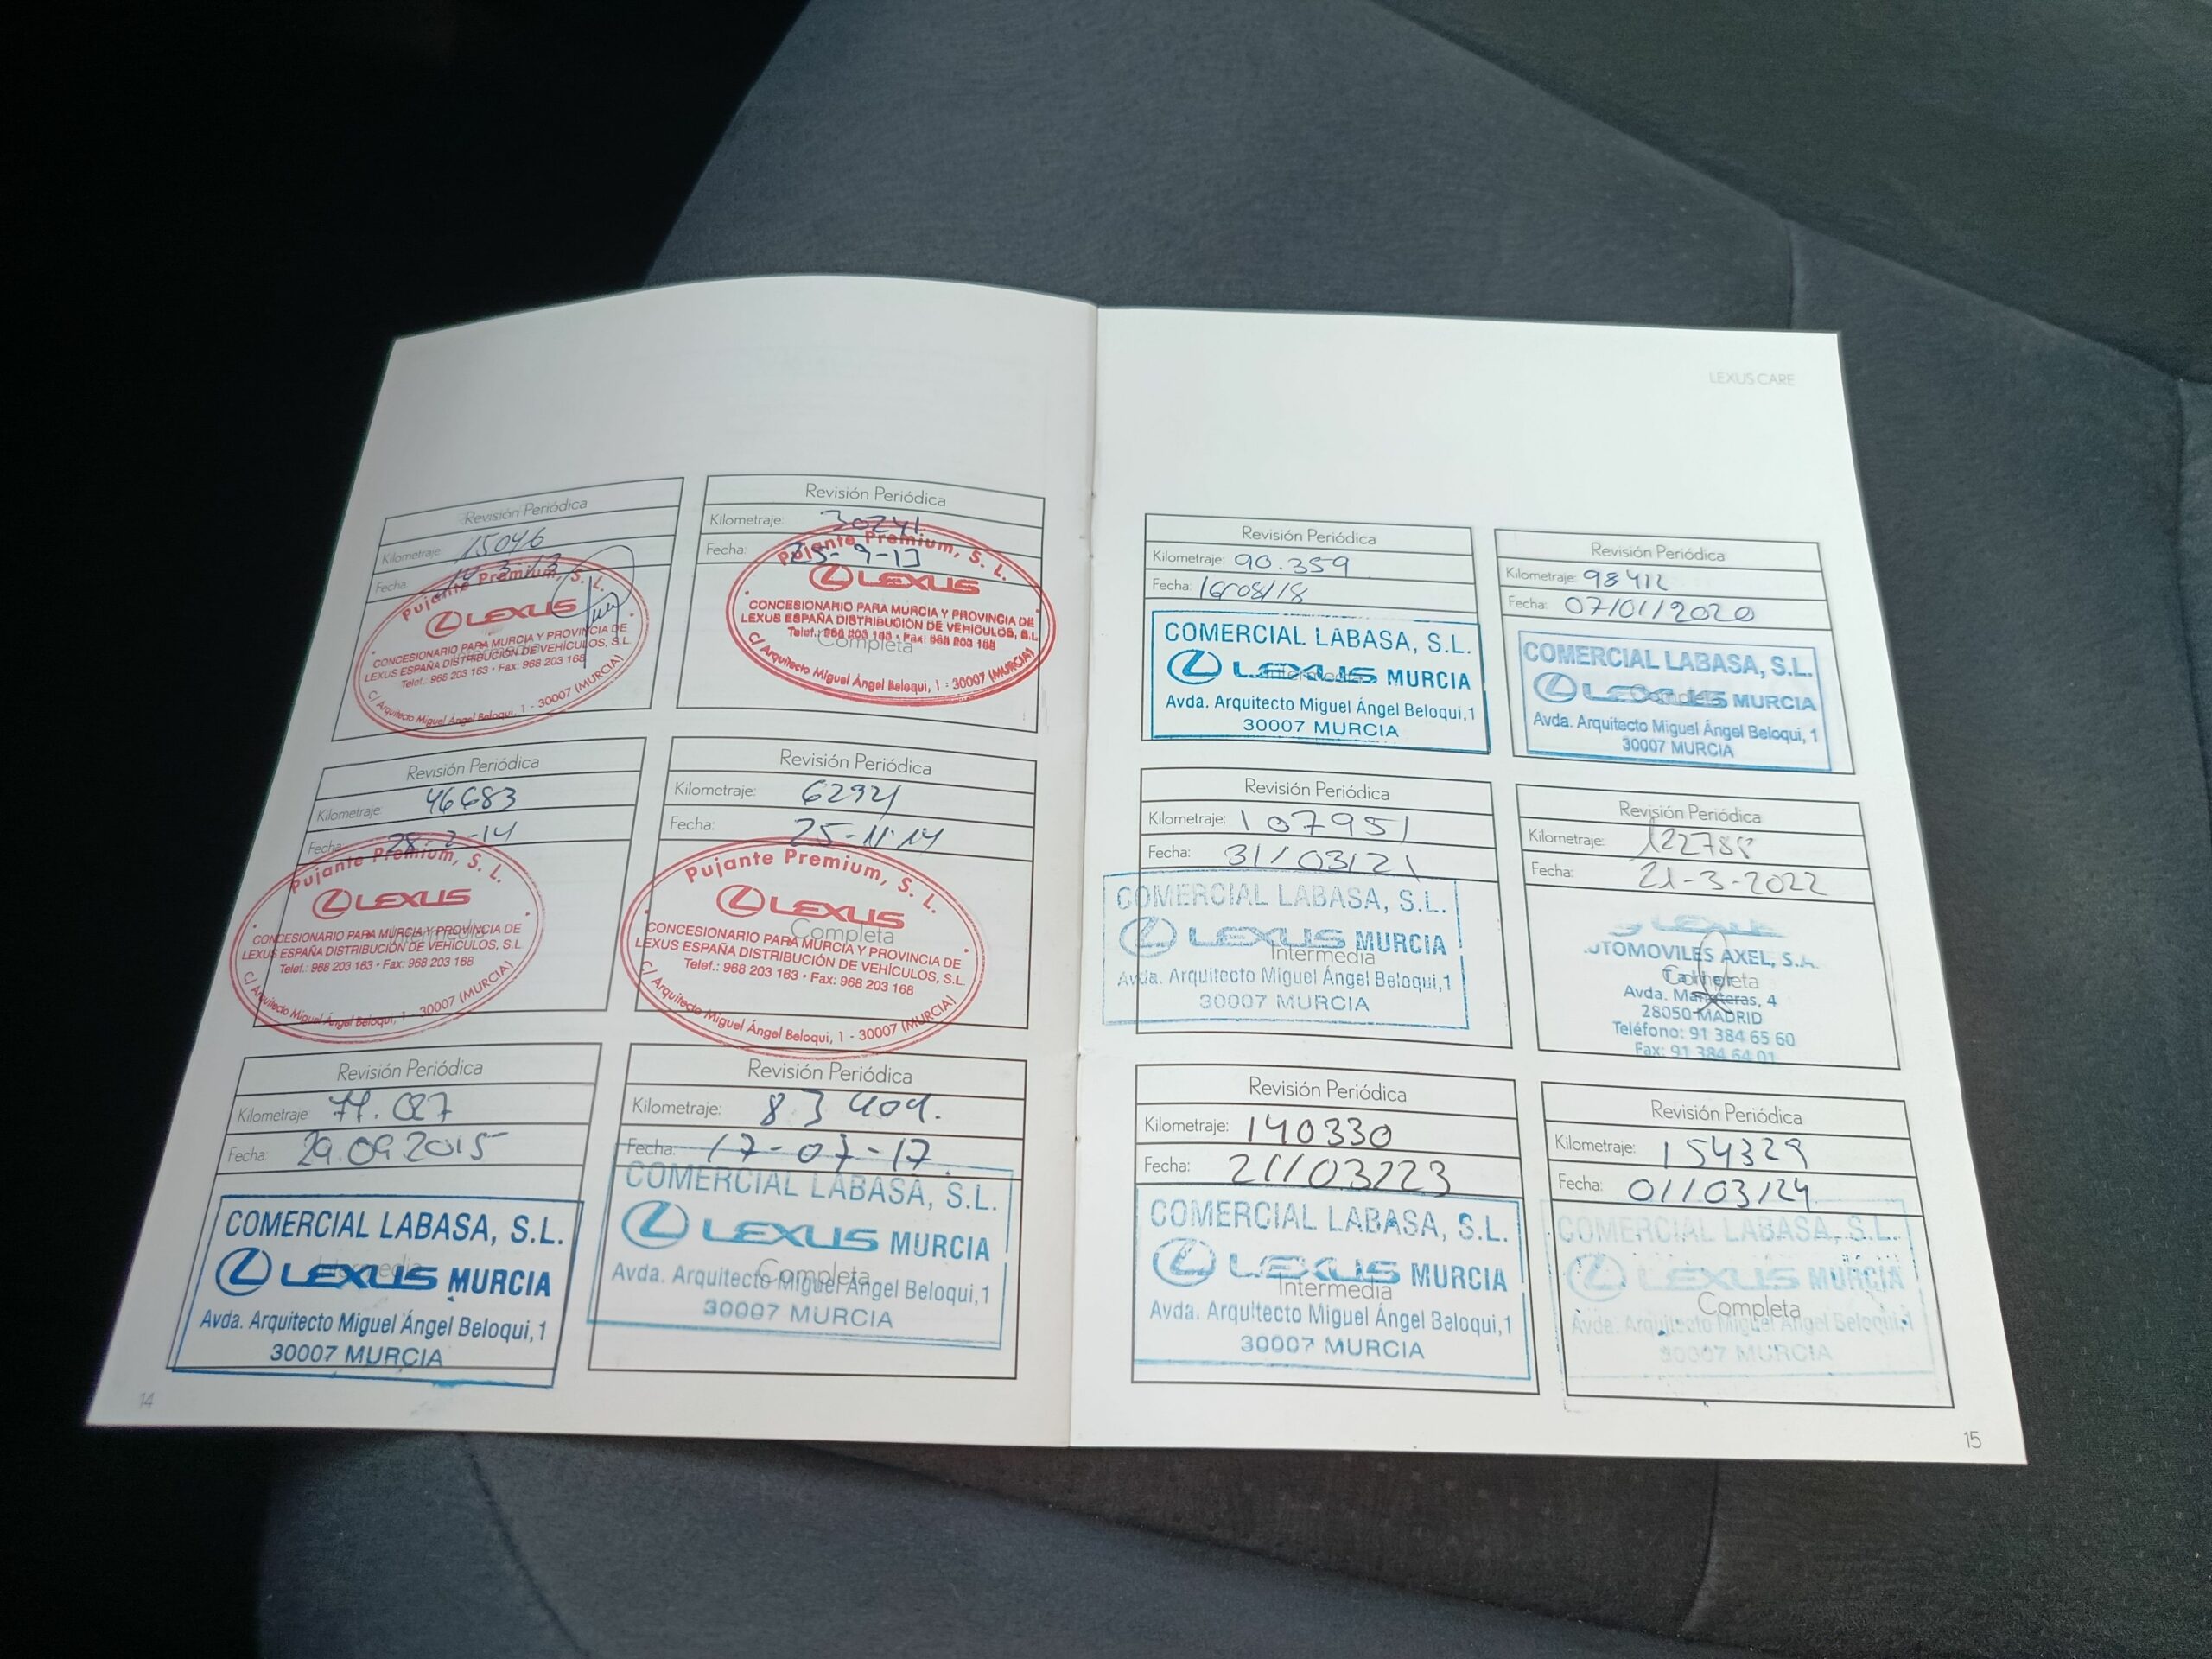 LEXUS CARE
Revisión Periódica
Kilometraje: 15046
Fecha:
Pujante Premium, S. L.
LEXUS
CONCESIONARIO PARA MURCIA Y PROVINCIA DE
LEXUS ESPAÑA DISTRIBUCIÓN DE VEHÍCULOS, S.L.
Telef.: 968 203 163 • Fax: 968 203 168
C/ Arquitecto Miguel Ángel Beloqui, 1 - 30007 (MURCIA)
Revisión Periódica
Kilometraje: 30241
Fecha: 25-9-13
Pujante Premium, S. L.
LEXUS
CONCESIONARIO PARA MURCIA Y PROVINCIA DE
LEXUS ESPAÑA DISTRIBUCIÓN DE VEHÍCULOS, S.L.
Telef.: 968 203 163 • Fax: 968 203 168
Completa
C/ Arquitecto Miguel Ángel Beloqui, 1 - 30007 (MURCIA)
Revisión Periódica
Kilometraje: 46683
Fecha: 28-2-14
Pujante Premium, S. L.
LEXUS
CONCESIONARIO PARA MURCIA Y PROVINCIA DE
LEXUS ESPAÑA DISTRIBUCIÓN DE VEHÍCULOS, S.L.
Telef.: 968 203 163 • Fax: 968 203 168
C/ Arquitecto Miguel Ángel Beloqui, 1 - 30007 (MURCIA)
Revisión Periódica
Kilometraje: 62921
Fecha: 25-11-14
Pujante Premium, S. L.
LEXUS
Completa
CONCESIONARIO PARA MURCIA Y PROVINCIA DE
LEXUS ESPAÑA DISTRIBUCIÓN DE VEHÍCULOS, S.L.
Telef.: 968 203 163 • Fax: 968 203 168
C/ Arquitecto Miguel Ángel Beloqui, 1 - 30007 (MURCIA)
Revisión Periódica
Kilometraje:
Fecha: 29.09.2015
COMERCIAL LABASA, S.L.
Intermedia
LEXUS MURCIA
Avda. Arquitecto Miguel Ángel Beloqui, 1
30007 MURCIA
Revisión Periódica
Kilometraje: 83404.
Fecha: 17-07-17
COMERCIAL LABASA, S.L.
LEXUS MURCIA
Completa
Avda. Arquitecto Miguel Ángel Beloqui,1
30007 MURCIA
14
Revisión Periódica
Kilometraje: 90.359
Fecha: 16/08/18
COMERCIAL LABASA, S.L.
LEXUS MURCIA
Intermedia
Avda. Arquitecto Miguel Ángel Beloqui,1
30007 MURCIA
Revisión Periódica
Kilometraje: 98412
Fecha: 07/01/2020
COMERCIAL LABASA, S.L.
LEXUS MURCIA
Completa
Avda. Arquitecto Miguel Ángel Beloqui, 1
30007 MURCIA
Revisión Periódica
Kilometraje: 107951
Fecha: 31/03/21
COMERCIAL LABASA, S.L.
LEXUS MURCIA
Intermedia
Avda. Arquitecto Miguel Ángel Beloqui,1
30007 MURCIA
Revisión Periódica
Kilometraje: 122788
Fecha: 21-3-2022
LEXUS
UTOMOVILES AXEL, S.A.
Completa
Avda. Manoteras, 4
28050 MADRID
Teléfono: 91 384 65 60
Fax: 91 384 64 01
Revisión Periódica
Kilometraje: 140330
Fecha: 21/03/223
COMERCIAL LABASA, S.L.
LEXUS MURCIA
Intermedia
Avda. Arquitecto Miguel Ángel Beloqui,1
30007 MURCIA
Revisión Periódica
Kilometraje: 154329
Fecha: 01/03/24
COMERCIAL LABASA, S.L.
LEXUS MURCIA
Completa
Avda. Arquitecto Miguel Ángel Beloqui,1
30007 MURCIA
15